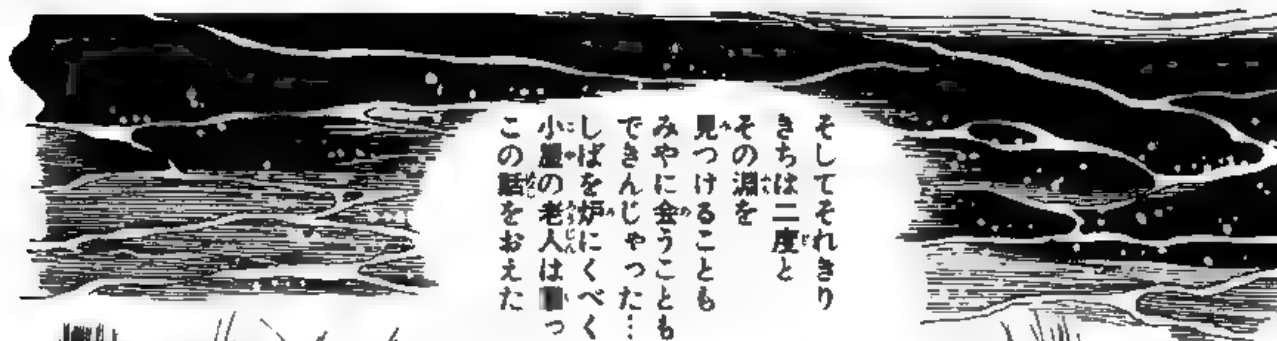 そしてそれきり
きちは二度と
その淵を
見つけることも
みやに会うことも
できんじゃった…
しばを炉にくべく
小屋の老人は
この話をおえた